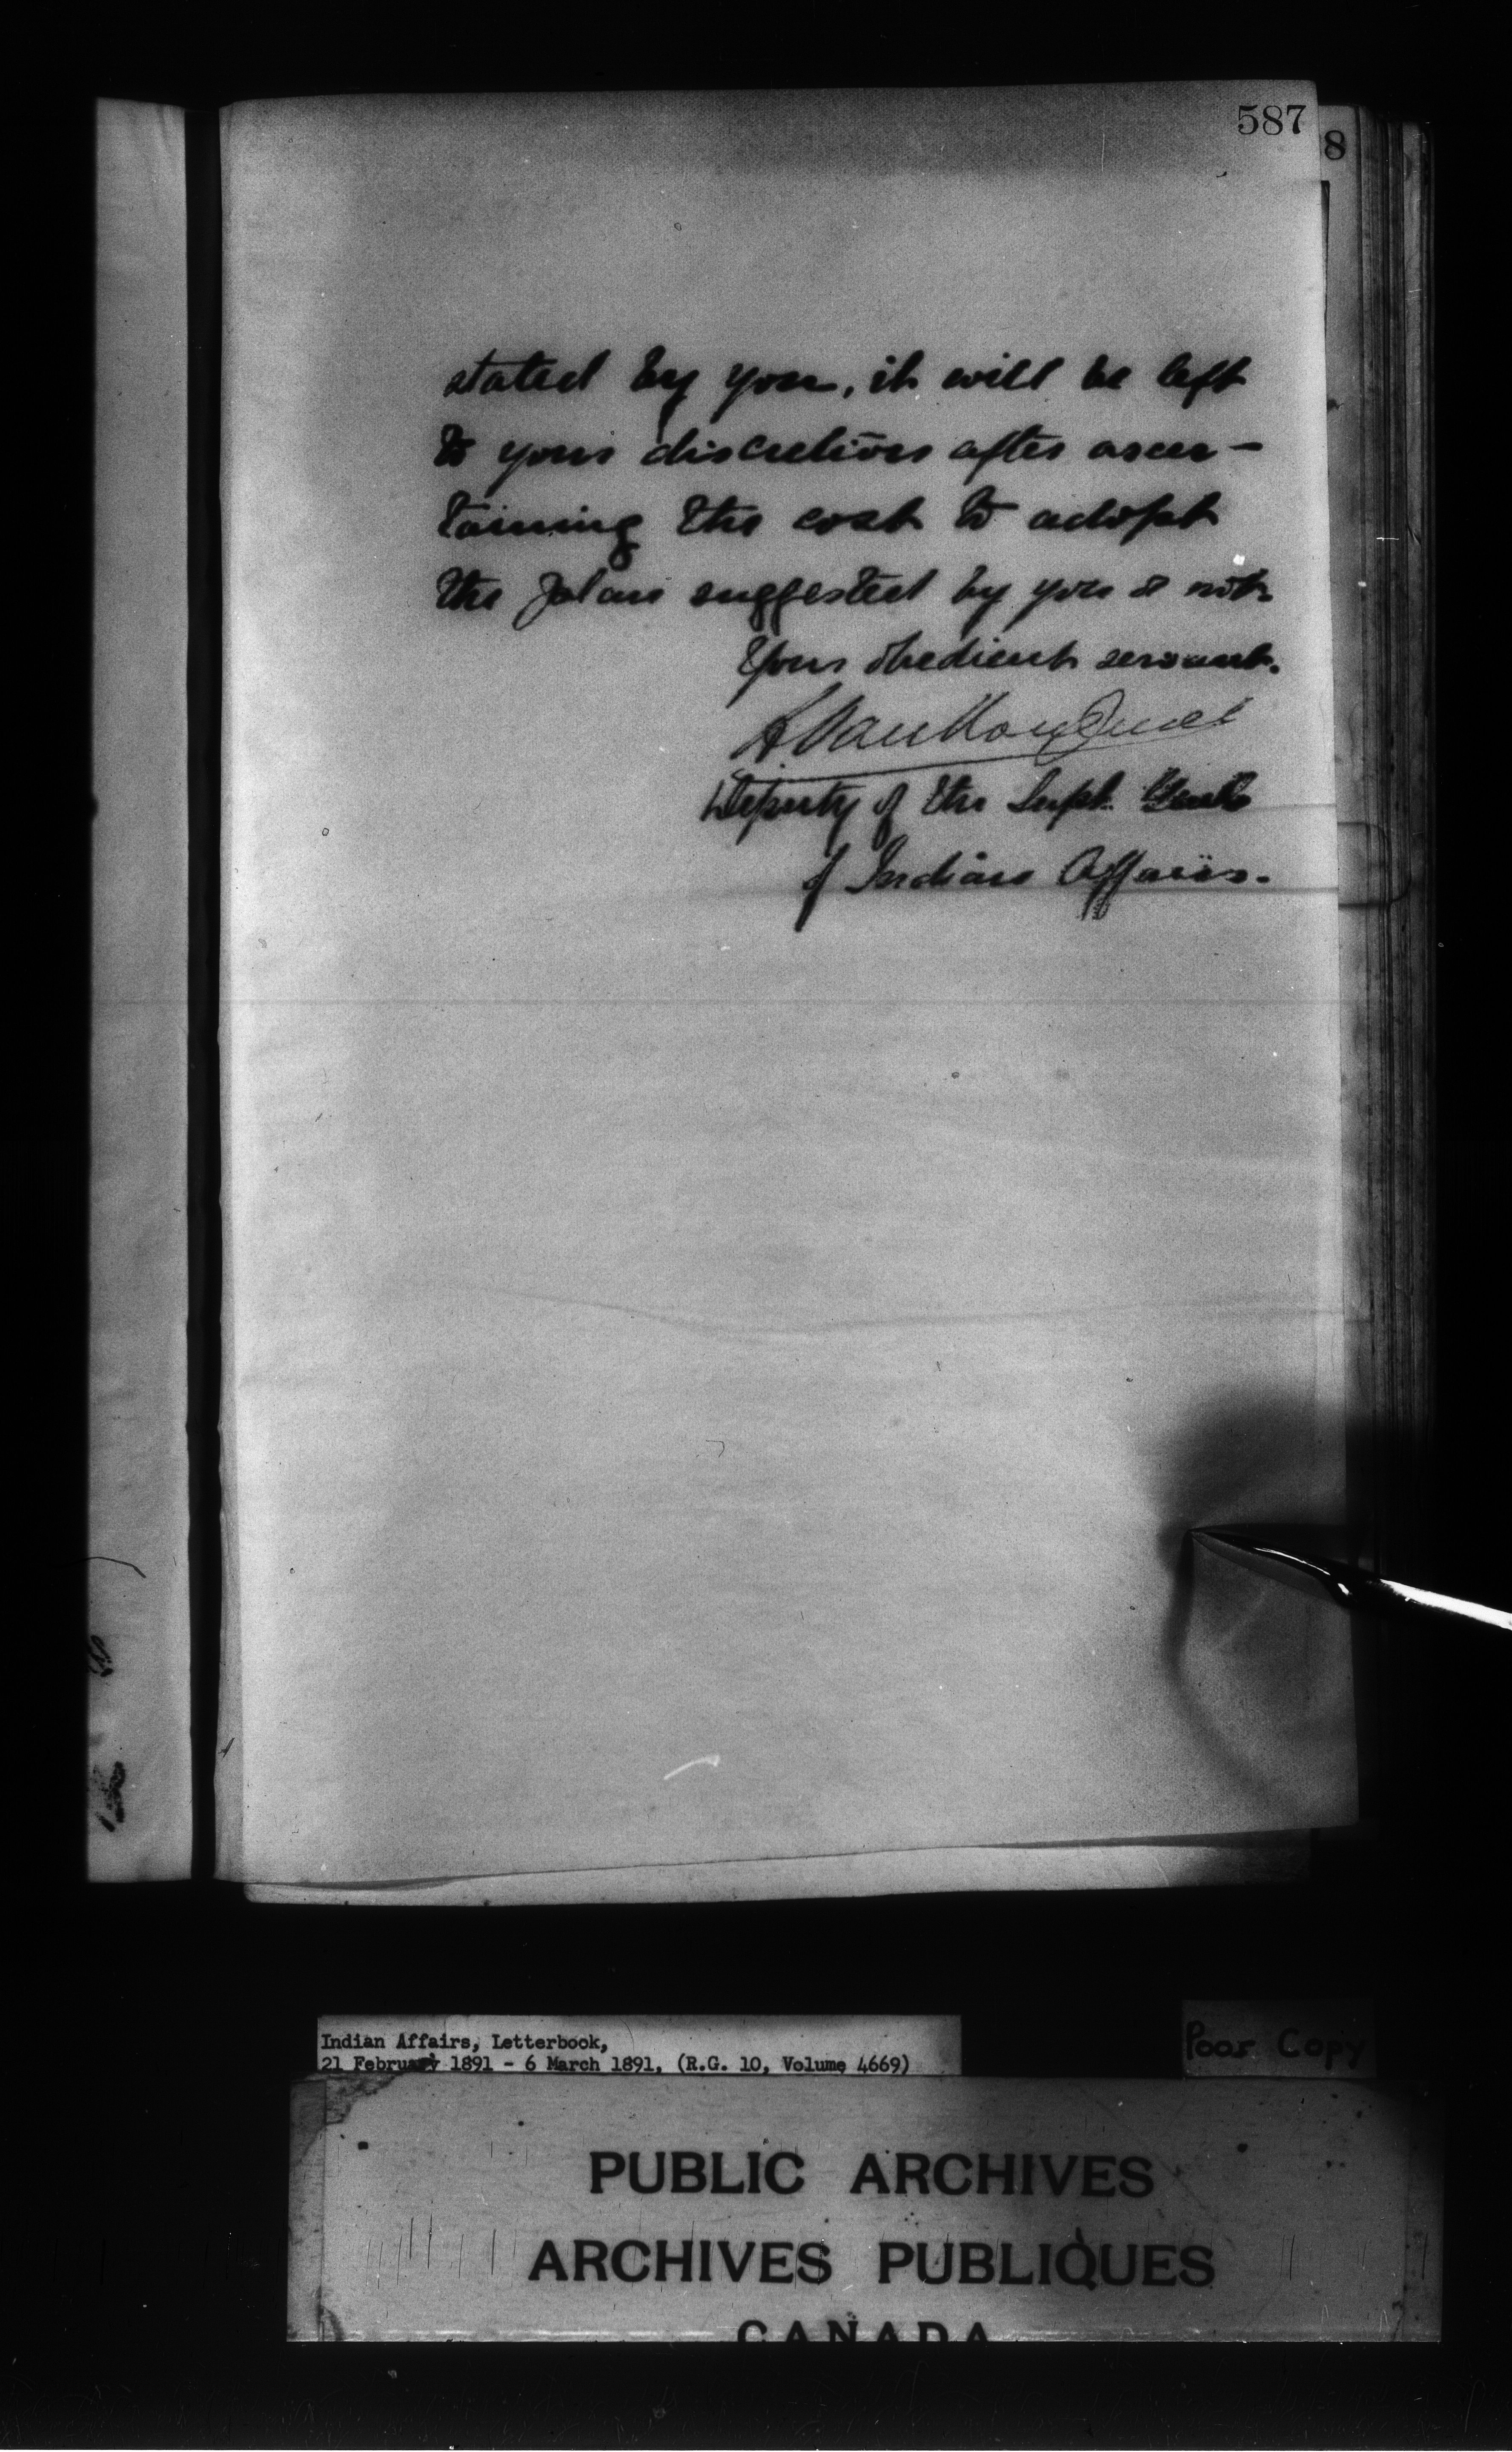 587
8
stated by you, it will be left
to your discretion after ascer-
taining the cost to adopt
the plan suggested by you or not.
Your obedient servant.
L. VanKoughnet
Deputy of the Supt. Genl.
of Indian Affairs.
Indian Affairs, Letterbook,
21 February 1891 - 6 March 1891, (R.G. 10, Volume 4669)
Poor Copy
PUBLIC ARCHIVES
ARCHIVES PUBLIQUES
CANADA